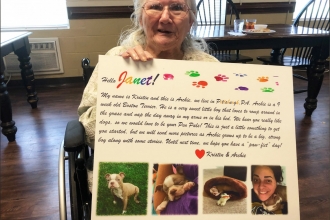 Hello Janet!
My name is Kristin and this is Archie, we live in Pittsburgh PA. Archie is a 9
week old Boston Terrier. He is a very sweet little boy that loves to romp around in
the grass and nap the day away in my arms or in his bed. We hear you really like
dogs, so we would love to be your Pen Pals! This is just a little something to get
you started, but we will send more pictures as Archie grows up to be a big, strong
boy along with some stories. Until next time, we hope you have a "paw-fect" day!
Kristin & Archie